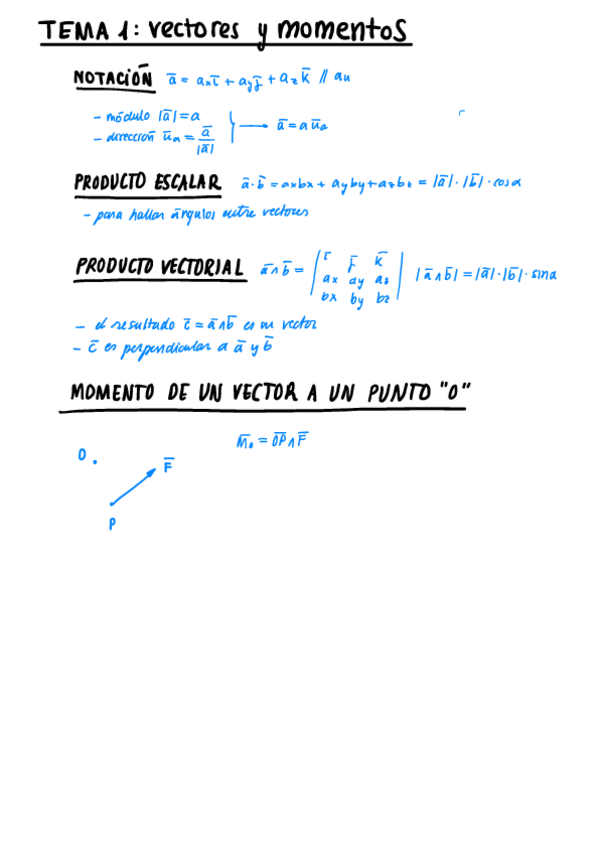 TEMA 1: vectores y momentos
NOTACIÓN a̅ = axi̅ + ayj̅ + azk̅ // au
- módulo |a̅| = a
- dirección u̅a = a̅/|a̅| → a̅ = a u̅a
PRODUCTO ESCALAR a̅·b̅ = axbx + ayby + azbz = |a̅|·|b̅|·cosα
- para hallar ángulos entre vectores
PRODUCTO VECTORIAL a̅∧b̅ = | i̅ j̅ k̅ | |a̅∧b̅| = |a̅|·|b̅|·sinα
ax ay az
bx by bz
- el resultado c̅ = a̅∧b̅ es un vector
- c̅ es perpendicular a a̅ y b̅
MOMENTO DE UN VECTOR A UN PUNTO "O"
M̅o = O̅P̅∧F̅
O
F̅
P